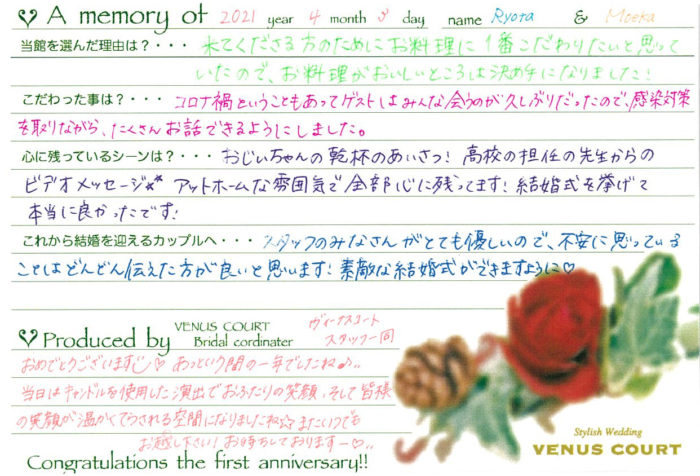 A memory of 2021 year 4 month 3 day name Ryota & Moeka
当館を選んだ理由は？・・・ 来てくださる方のためにお料理に1番こだわりたいと思って
いたので、お料理がおいしいところは決め手になりました！
こだわった事は？・・・ コロナ禍ということもあってゲストはみんな会うのが久しぶりだったので、感染対策
を取りながら、たくさんお話できるようにしました。
心に残っているシーンは？・・・ おじいちゃんの乾杯のあいさつ！ 高校の担任の先生からの
ビデオメッセージ☆☆ アットホームな雰囲気で全部心に残ってます！結婚式を挙げて
本当に良かったです！
これから結婚を迎えるカップルへ・・・ スタッフのみなさんがとても優しいので、不安に思っている
ことはどんどん伝えた方が良いと思います！素敵な結婚式ができますように♡
Produced by VENUS COURT Bridal cordinater ヴィーナスコート スタッフ一同
おめでとうございます♡ あっという間の一年でしたね♪
当日はキャンドルを使用した演出でおふたりの笑顔、そして皆様
の笑顔が温かくてうされる空間になりましたね☆またいつでも
お越し下さい！お待ちしておりますー♡
Congratulations the first anniversary!!
Stylish Wedding
VENUS COURT